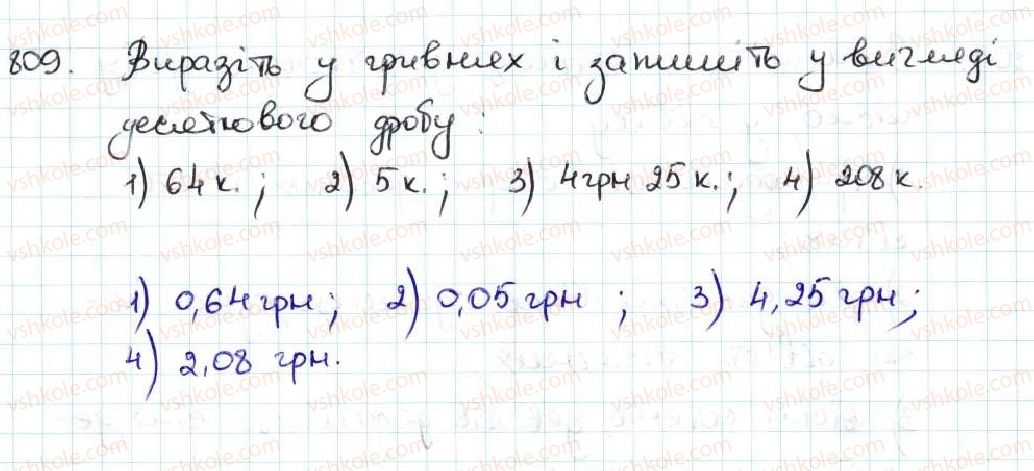 809. Виразіть у гривнях і запишіть у вигляді
десяткового дробу:
1) 64 к.; 2) 5 к.; 3) 4 грн 25 к.; 4) 208 к.
1) 0,64 грн; 2) 0,05 грн; 3) 4,25 грн;
4) 2,08 грн.